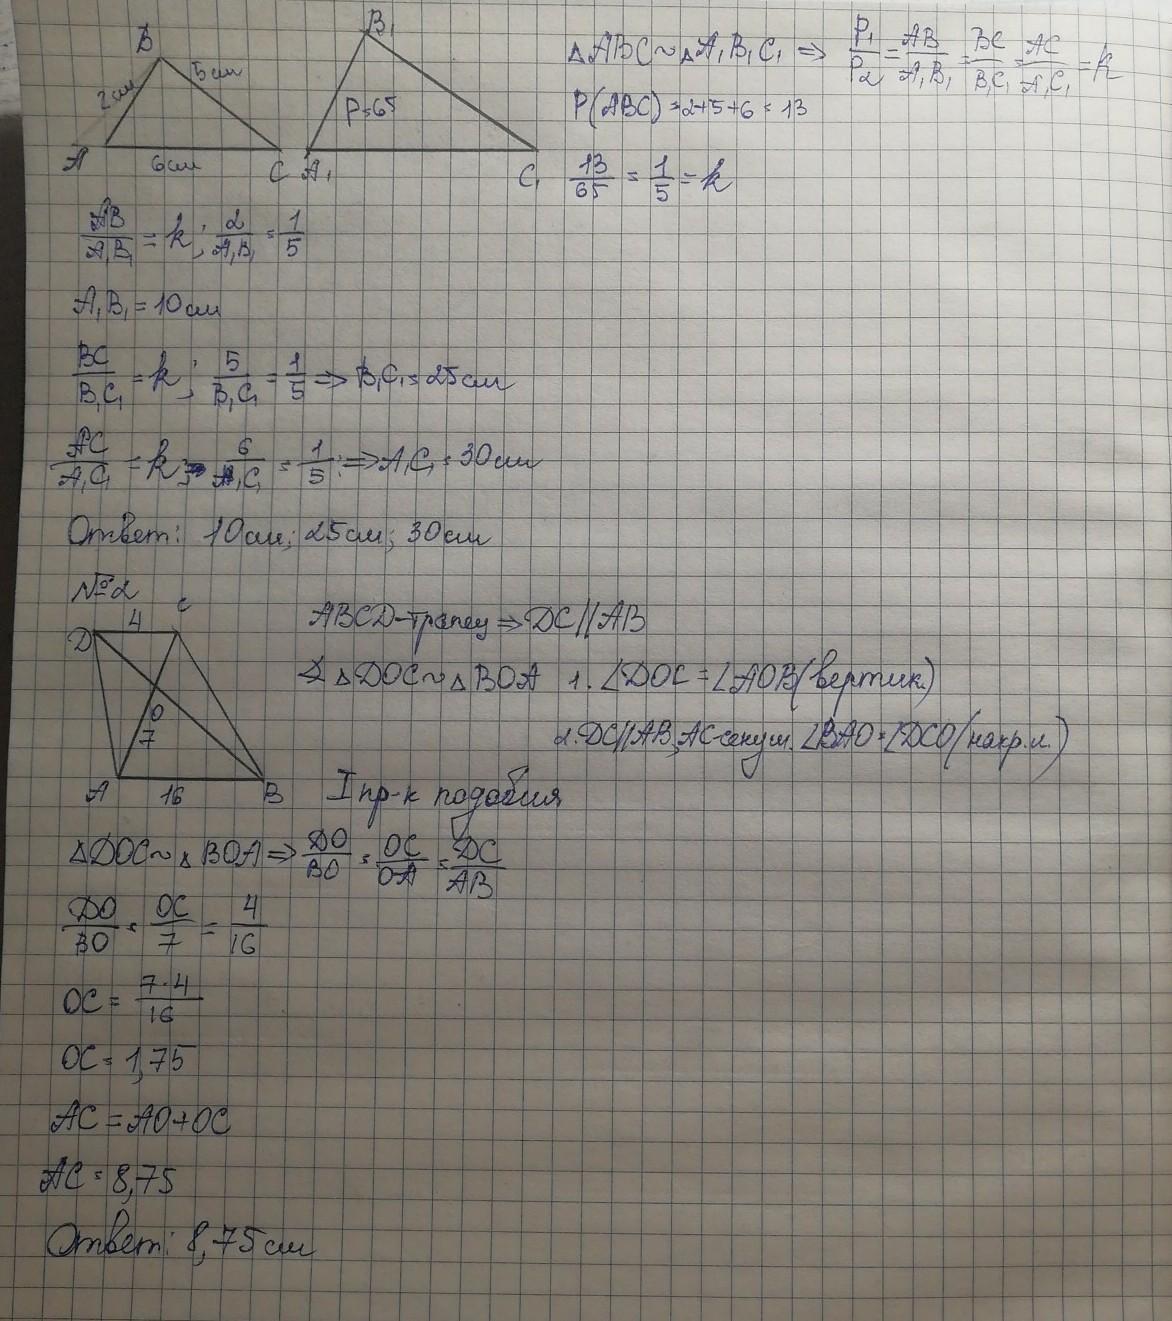 B
B₁
2см
5см
P=65
A
6см
C
A₁
C₁
△ABC ~ △A₁B₁C₁ ⇒ P₁/P₂ = AB/A₁B₁ = BC/B₁C₁ = AC/A₁C₁ = k
P(ABC) = 2+5+6 = 13
13/65 = 1/5 = k
AB/A₁B₁ = k; 2/A₁B₁ = 1/5
A₁B₁ = 10см
BC/B₁C₁ = k; 5/B₁C₁ = 1/5 ⇒ B₁C₁ = 25см
AC/A₁C₁ = k; 6/A₁C₁ = 1/5 ⇒ A₁C₁ = 30см
Ответ: 10см; 25см; 30см
№2
D
4
C
O
7
A
16
B
ABCD-трапец ⇒ DC||AB
△DOC ~ △BOA 1. ∠DOC = ∠AOB (вертик.)
2. DC||AB, AC-секущ. ∠BAO = ∠DCO (накр.л.)
I пр-к подобия
△DOC ~ △BOA ⇒ DO/BO = OC/OA = DC/AB
DO/BO = OC/7 = 4/16
OC = 7·4/16
OC = 1,75
AC = AO+OC
AC = 8,75
Ответ: 8,75см